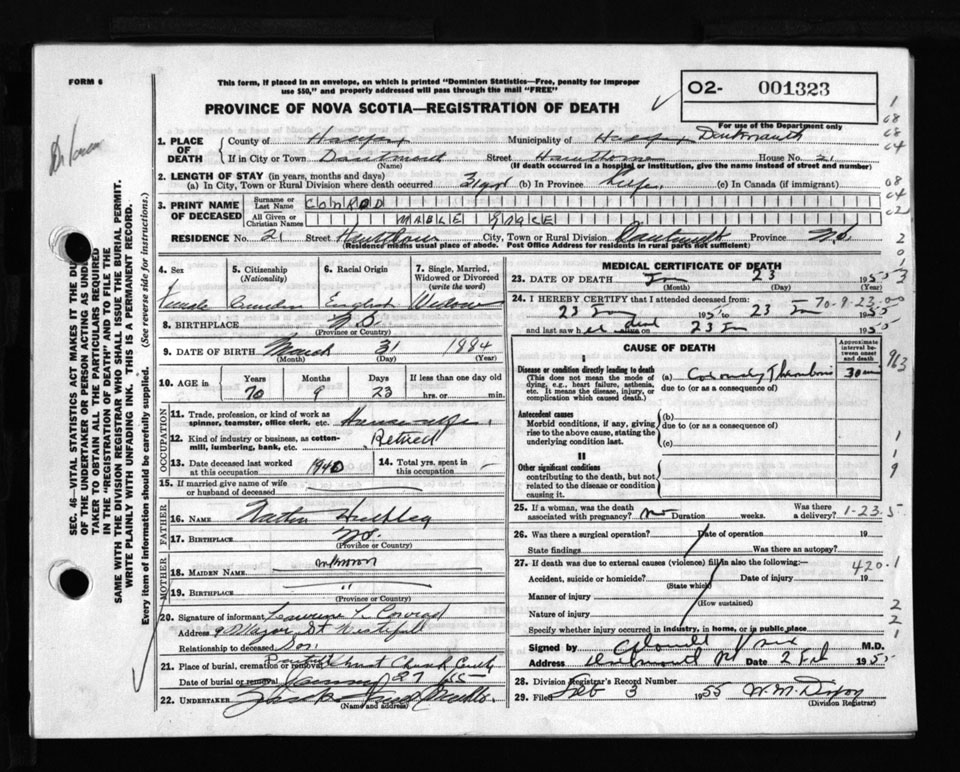 FORM 6
This form, if placed in an envelope, on which is printed "Dominion Statistics—Free, penalty for improper
use $50," and properly addressed will pass through the mail "FREE"
PROVINCE OF NOVA SCOTIA—REGISTRATION OF DEATH
02- 001323
For use of the Department only
1. PLACE OF DEATH
County of Halifax Municipality of Halifax Dartmouth
If in City or Town Dartmouth Street Hawthorne House No. 21
(Name) (If death occurred in a hospital or institution, give the name instead of street and number)
2. LENGTH OF STAY (in years, months and days)
(a) In City, Town or Rural Division where death occurred 31 yrs (b) In Province Life (c) In Canada (if immigrant)
3. PRINT NAME OF DECEASED
Surname or Last Name CONROD
All Given or Christian Names MABLE
RESIDENCE No. 21 Street Hawthorne City, Town or Rural Division Dartmouth Province N.S.
(Residence means usual place of abode. Post Office Address for residents in rural parts not sufficient)
4. Sex
5. Citizenship (Nationality)
6. Racial Origin
7. Single, Married, Widowed or Divorced (write the word)
Female Canadian English Widow
8. BIRTHPLACE N.S.
(Province or Country)
9. DATE OF BIRTH March 31 1884
(Month) (Day) (Year)
10. AGE in Years Months Days If less than one day old
70 9 23 hrs. or min.
OCCUPATION
11. Trade, profession, or kind of work as spinner, teamster, office clerk, etc. Housewife
12. Kind of industry or business, as cotton-mill, lumbering, bank, etc. Retired
13. Date deceased last worked at this occupation 1940
14. Total yrs. spent in this occupation —
15. If married give name of wife or husband of deceased
FATHER
16. NAME Hubley
17. BIRTHPLACE N.S.
(Province or Country)
MOTHER
18. MAIDEN NAME unknown
19. BIRTHPLACE "
(Province or Country)
20. Signature of informant L. Conrad
Address 9 Major St Westphal
Relationship to deceased Son
21. Place of burial, cremation or removal Christ Church
Date of burial or removal January 27 /55
22. UNDERTAKER
(Name and address)
MEDICAL CERTIFICATE OF DEATH
23. DATE OF DEATH Jan 23 1955
(Month) (Day) (Year)
24. I HEREBY CERTIFY that I attended deceased from
23 Jan 1955 to 23 Jan 1955
and last saw her dead alive on 23 Jan 1955
70-9-23-00
CAUSE OF DEATH
Approximate interval between onset and death
I
Disease or condition directly leading to death
(This does not mean the mode of dying, e.g., heart failure, asthenia, etc. It means the disease, injury, or complication which caused death.)
(a) Coronary Thrombosis 30 min
due to (or as a consequence of)
Antecedent causes
Morbid conditions, if any, giving rise to the above cause, stating the underlying condition last.
(b)
due to (or as a consequence of)
(c)
II
Other significant conditions
contributing to the death, but not related to the disease or condition causing it.
25. If a woman, was the death associated with pregnancy? no Duration weeks. Was there a delivery? 1-23-5
26. Was there a surgical operation? Date of operation 19
State findings Was there an autopsy?
27. If death was due to external causes (violence) fill in also the following:—
420.1
Accident, suicide or homicide? Date of injury 19
(State which)
Manner of injury
(How sustained)
Nature of injury
Specify whether injury occurred in industry, in home, or in public place
Signed by M.D.
Address Dartmouth NS Date 2 Feb 1955
28. Division Registrar's Record Number
29. Filed Feb 3 1955
(Division Registrar)
SEC. 46—VITAL STATISTICS ACT MAKES IT THE DUTY
OF THE UNDERTAKER OR PERSON ACTING AS UNDERTAKER
TO OBTAIN ALL THE PARTICULARS REQUIRED
IN THE "REGISTRATION OF DEATH" AND TO FILE THE
SAME WITH THE DIVISION REGISTRAR WHO SHALL ISSUE THE BURIAL PERMIT.
WRITE PLAINLY WITH UNFADING INK. THIS IS A PERMANENT RECORD.
Every item of information should be carefully supplied. (See reverse side for instructions.)